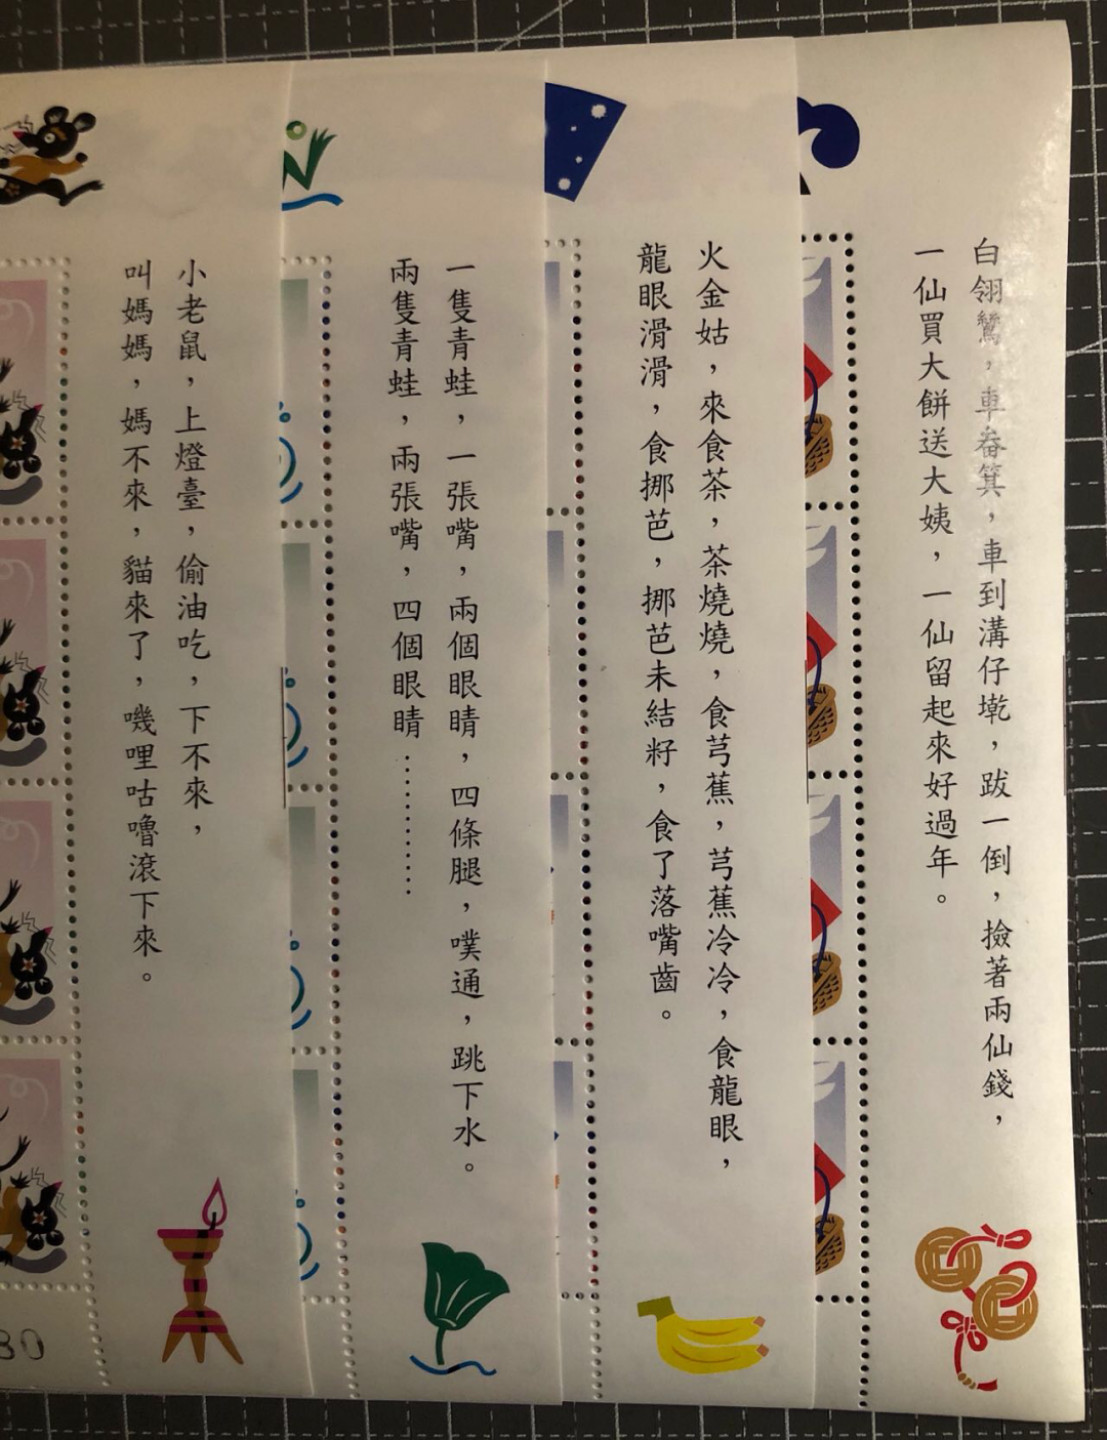 白翎鷥，車畚箕，車到溝仔墘，跋一倒，撿著兩仙錢，
一仙買大餅送大姨，一仙留起來好過年。
火金姑，來食茶，茶燒燒，食芎蕉，芎蕉冷冷，食龍眼，
龍眼滑滑，食挪芭，挪芭未結籽，食了落嘴齒。
一隻青蛙，一張嘴，兩個眼睛，四條腿，噗通，跳下水。
兩隻青蛙，兩張嘴，四個眼睛…………
小老鼠，上燈臺，偷油吃，下不來，
叫媽媽，媽不來，貓來了，嘰哩咕嚕滾下來。